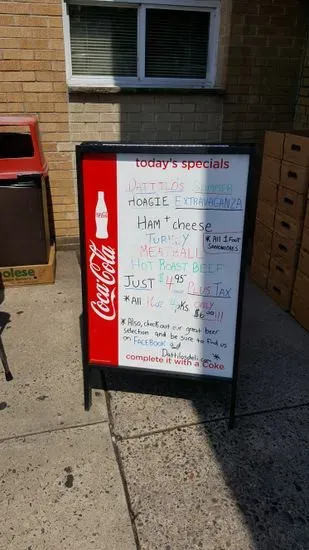 today's specials
DATTILO'S SUMMER
HOAGIE EXTRAVAGANZA
HAM + cheese
TURKEY
MEATBALL
HOT ROAST BEEF
* ALL 1 FOOT
SANDWICHES
JUST $4.95 PLUS TAX
* ALL 16oz 4pks ONLY
$6.00!!!
* Also, check out our great beer
selection and be sure to find us
on FACEBOOK and
Dattilosdeli.com *
complete it with a Coke
Coca-Cola
olese